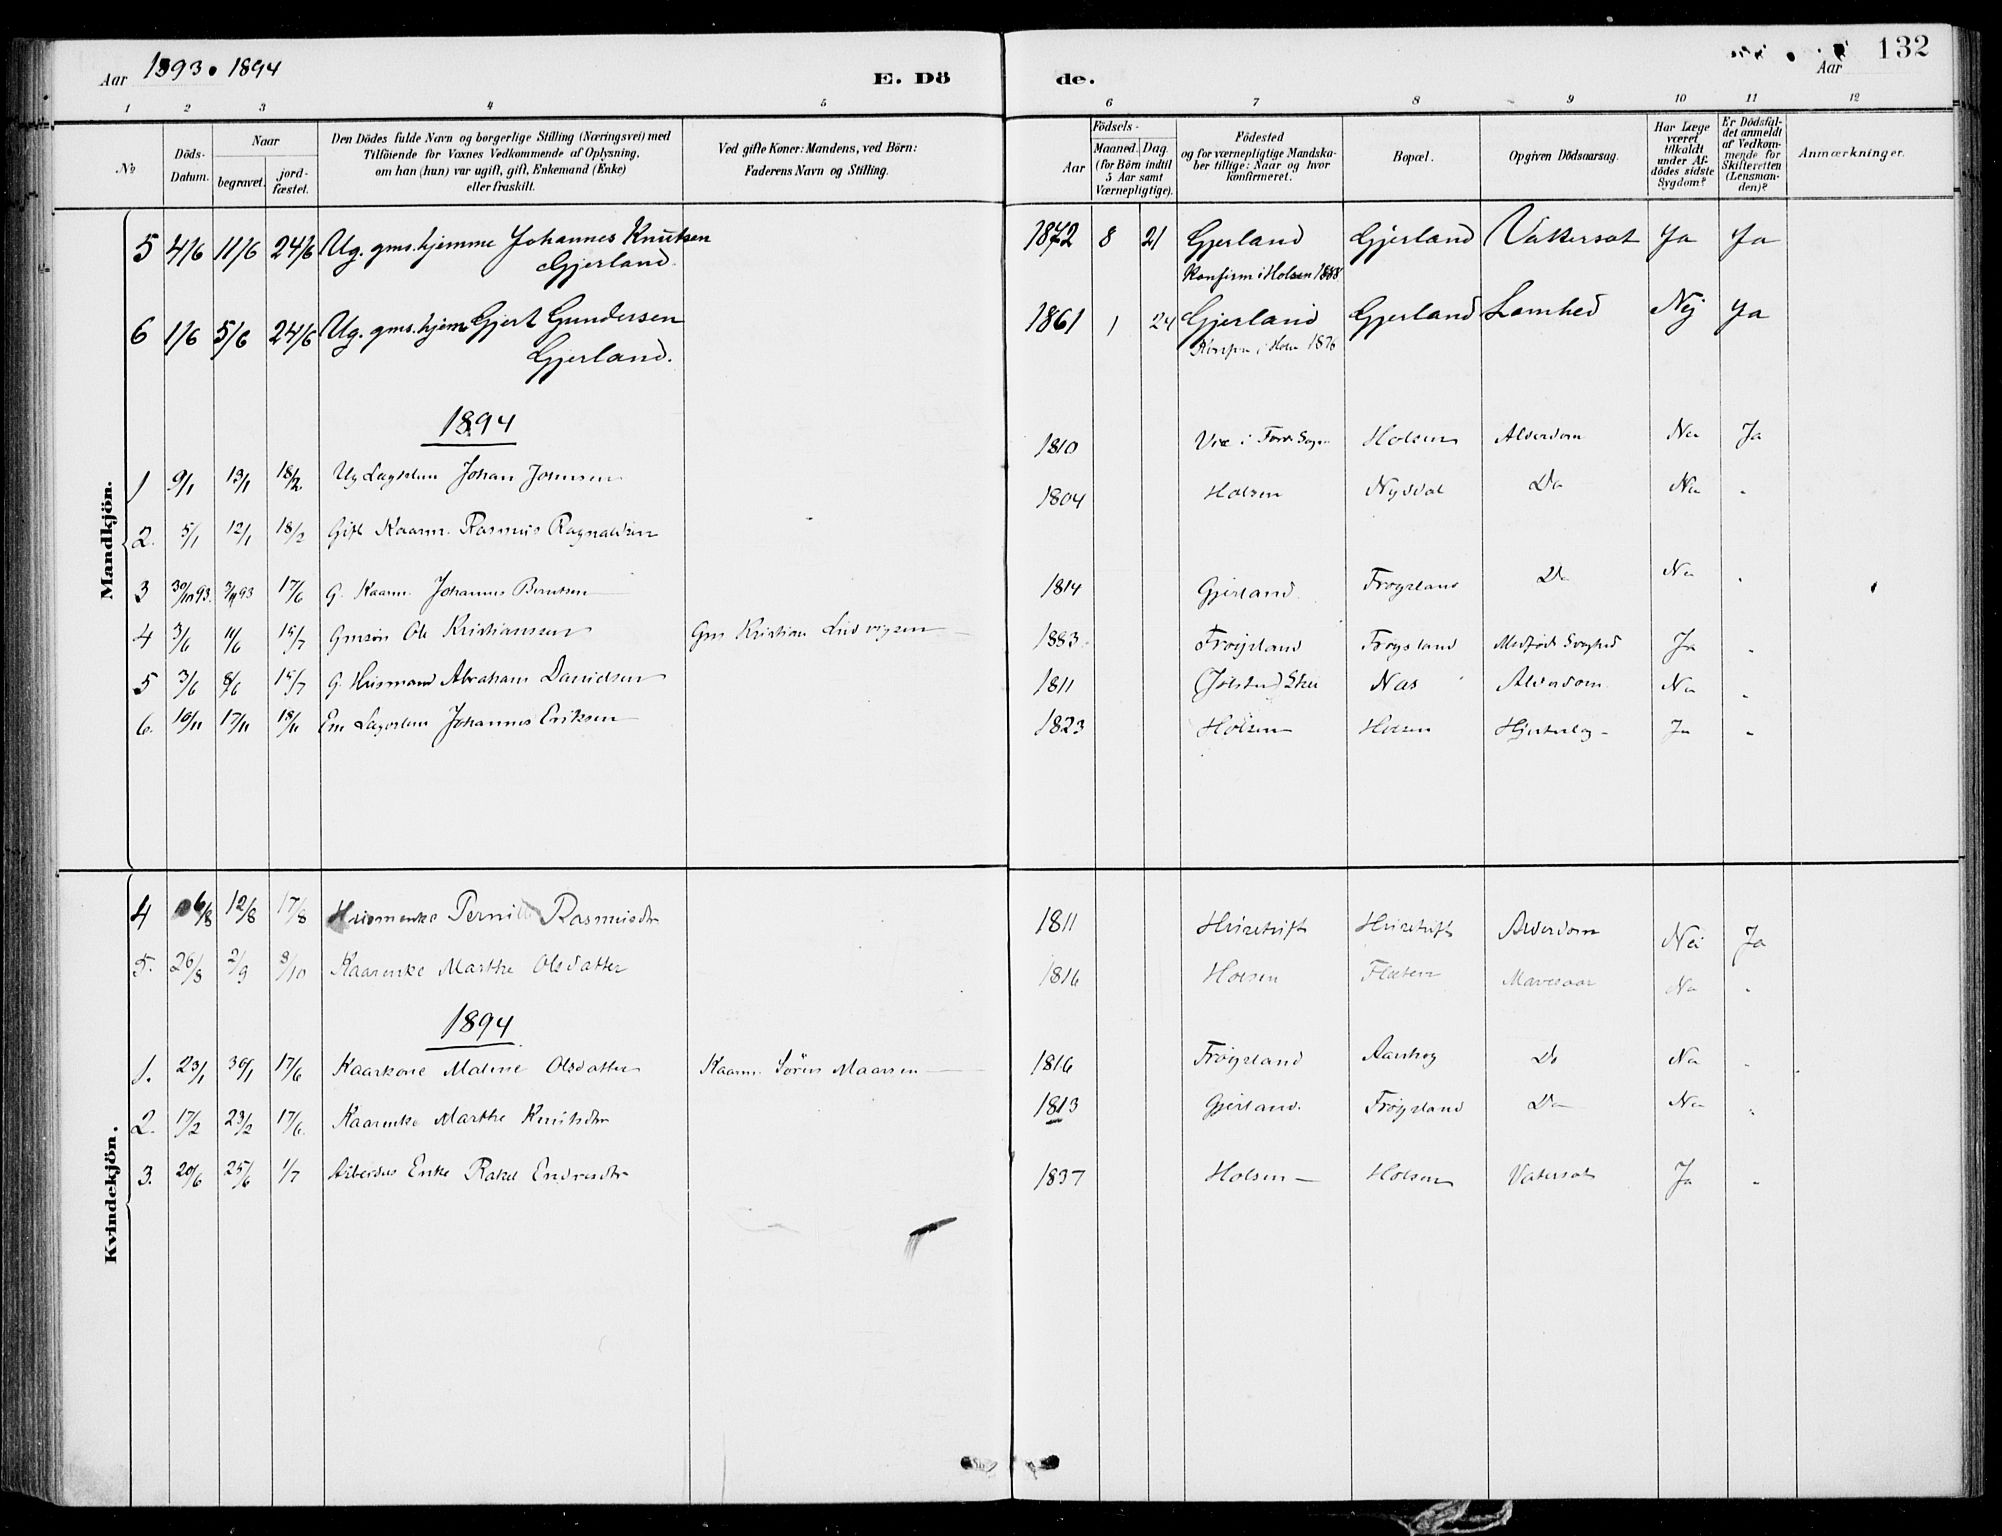 Aar 1893. 1894
E. Dö
de.
Aar
132
1 2 3 4 5 6 7 8 9 10 11 12
No
Döds-Datum.
Naar
begravet.
jord-fæstet.
Den Dödes fulde Navn og borgerlige Stilling (Næringsvei) med
Tilföiende for Voxnes Vedkommende af Oplysning,
om han (hun) var ugift, gift, Enkemand (Enke)
eller fraskilt.
Ved gifte Koner: Mandens, ved Börn:
Faderens Navn og Stilling.
Födsels-
Aar
Maaned. Dag.
(for Börn indtil
5 Aar samt
Værnepligtige).
Födested
og for værnepligtige Mandska-
ber tillige: Naar og hvor
konfirmeret.
Bopæl.
Opgiven Dödsaarsag.
Har Læge
været
tilkaldt
under Af-
dödes sidste
Sygdom?
Er Dödsfal-
det anmeldt
af Vedkom-
mende for
Skifteretten
(Lensman-
den)?
Anmærkninger.
Mandkjön.
5 4/6 11/6 24/6 Ug. gms. hjemme Johannes Knutsen 1872 8 21 Gjerland Gjerland Vattersot Ja Ja
Gjerland. Konfirm i Holsen 1888
6 1/6 5/6 24/6 Ug. gms. hjem Gjert Gundersen 1861 1 24 Gjerland Gjerland Lamhed Nej Ja
Gjerland. i Holsen 1876
1894
1 9/1 13/1 18/2 Ug Lægdslem Johan Johnsen 1810 i Sogn Holsen Alderdom Nei Ja
2. 5/1 12/1 18/2 Gift Kaarm. Rasmus Ragnaldsen 1804 Holsen Nydal Do Nei "
3 93. 93 17/6 G. Kaarm. Johannes Berntsen 1814 Gjerland Fröysland Do Nei "
4 3/6 11/6 15/7 Gmsön Ole Kristianssen Gm Kristian Ludvigsen 1883 Fröysland Fröysland Medfödt Svaghed Ja "
5 3/6 8/6 15/7 G. Husmand Abraham Danielsen 1811 (Jölster) Skei Nas Alderdom Nei "
6. 10/11 17/11 18/11 Em Lægdslem Johannes Eriksen 1823 Holsen Holsen Ja "
Kvindekjön.
4 6/8 12/8 17/8 Husmenke Pernille Rasmusdtr 1811 Alderdom Nei Ja
5. 26/8 2/9 8/10 Kaarenke Marthe Olsdatter 1816 Holsen Flaten Mavesaar Nei "
1894
1. 23/1 30/1 17/6 Kaarkone Malene Olsdatter Kaarm. Sören Maarsen 1816 Fröysland Do Nei "
2. 17/2 23/2 17/6. Kaarenke Marthe Knutsdtr 1813 Gjerland. Fröysland Do Nei "
3. 20/6 25/6 1/7 Enke Rakel Endresdtr 1837 Holsen Holsen Vatersot Ja "